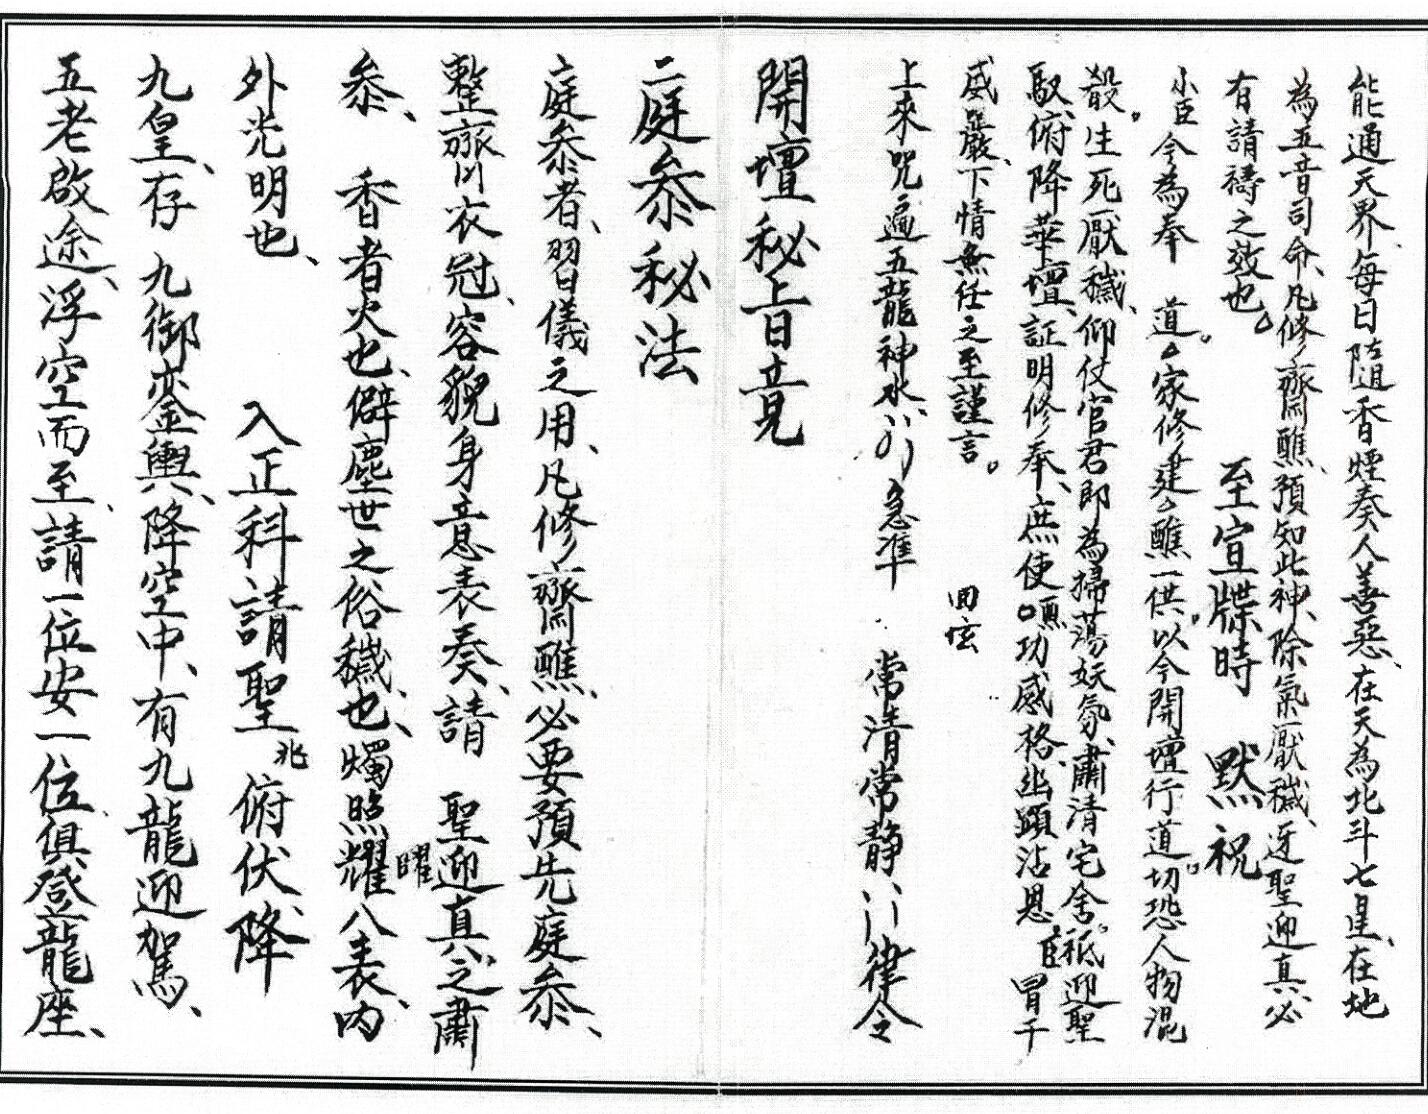 能通天界、每日隨香煙奏人善惡、在天為北斗七星、在地
為五音司命、凡修齋醮、預知此神、除氣厭穢、迓聖迎真、必
有請禱之效也。 至宣牒時 默祝
小臣今為奉 道。家修建 醮一供。以今開壇行道。切恐人物混
殽。生死厭穢、仰仗官君即為掃蕩妖氛、肅清宅舍。祗迎聖
馭、俯降華壇、証明修奉、庶使 功感格、幽顯沾恩 臣冒干
威嚴、下情無任之至謹言。 回坛
上來咒遍五龍神水 急准 常清常静 律令
開壇秘旨竟
二庭参秘法
庭参者、習儀之用、凡修齋醮、必要預先庭参、
整齊 衣冠、容貌身意表奏、請 聖迎真、之肅
参、 香者火也、僻塵世之俗穢也、燭照耀八表、内
曜
外光明也、 入正科請聖 兆 俯伏、降
九皇、存 九御鑾輿、降空中、有九龍迎駕、
五老啟途、浮空而至、請一位安一位、俱登龍座、